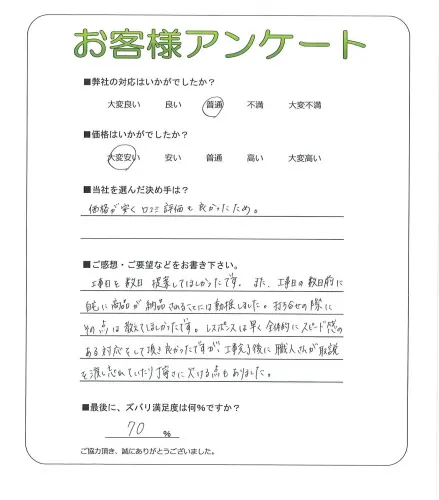 お客様アンケート
■弊社の対応はいかがでしたか?
大変良い 良い 普通 不満 大変不満
■価格はいかがでしたか?
大変安い 安い 普通 高い 大変高い
■当社を選んだ決め手は?
価格が安く口コミ評価も良かったため。
■ご感想・ご要望などをお書き下さい。
工事日を数日 提案してほしかったです。また、工事日の数日前に
自宅に商品が納品されることには動揺しました。打ち合せの際に
その点は教えてほしかったです。レスポンスは早く全体的にスピード感の
ある対応をして頂き良かったですが、工事完了後に職人さんが取説
を渡し忘れていたり丁寧さに欠ける点もありました。
■最後に、ズバリ満足度は何%ですか?
70 %
ご協力頂き、誠にありがとうございました。